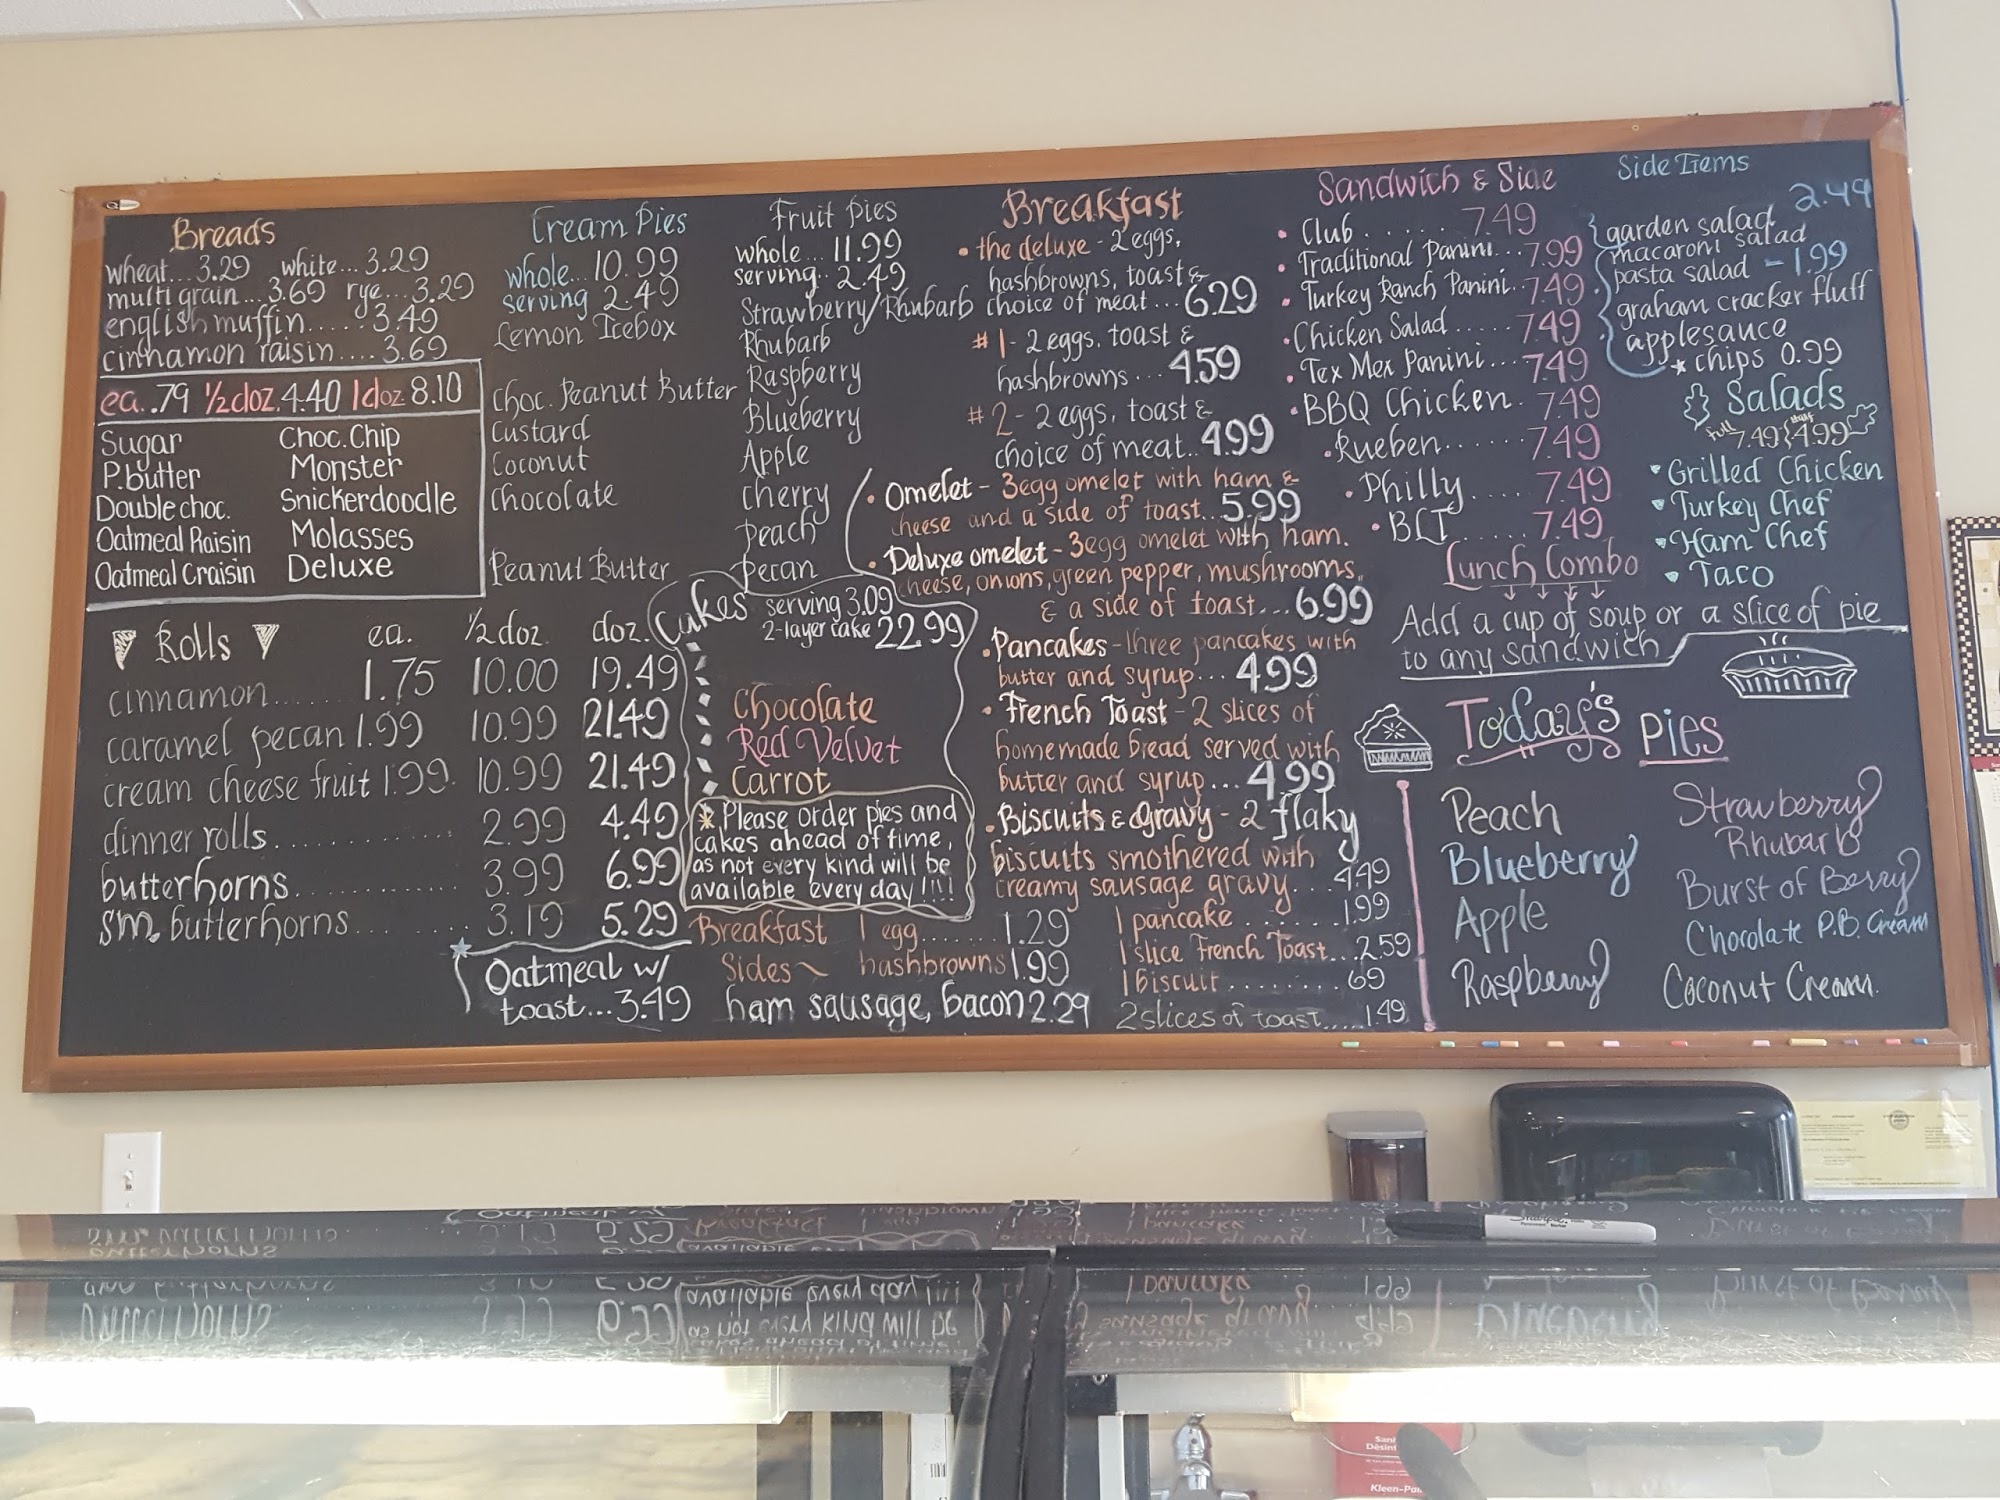 Breads
wheat...3.29 white...3.29
multi grain...3.69 rye...3.29
english muffin.....3.49
cinnamon raisin....3.69
ea. .79 1/2 doz. 4.40 1 doz 8.10
Sugar Choc. Chip
P.butter Monster
Double choc. Snickerdoodle
Oatmeal Raisin Molasses
Oatmeal Craisin Deluxe
Rolls ea. 1/2 doz. doz.
cinnamon....... 1.75 10.00 19.49
caramel pecan 1.99 10.99 21.49
cream cheese fruit 1.99. 10.99 21.49
dinner rolls............. 2.99 4.49
butterhorns............. 3.99 6.99
sm. butterhorns.... ..... 3.19 5.29
Oatmeal w/
toast...3.49
Cream Pies
whole...10.99
serving 2.49
Lemon Icebox
Choc. Peanut Butter
Custard
Coconut
Chocolate
Peanut Butter
Fruit Pies
whole...11.99
serving..2.49
Strawberry/Rhubarb
Rhubarb
Raspberry
Blueberry
Apple
Cherry
Peach
Pecan
Cakes serving 3.09
2-layer cake 22.99
Chocolate
Red Velvet
Carrot
* Please order pies and
cakes ahead of time,
as not every kind will be
available every day!!!!
Breakfast
• the deluxe - 2 eggs,
hashbrowns, toast &
choice of meat...6.29
#1 - 2 eggs, toast &
hashbrowns...4.59
#2 - 2 eggs, toast &
choice of meat..4.99
• Omelet - 3egg omelet with ham &
cheese and a side of toast...5.99
• Deluxe omelet - 3egg omelet with ham.
cheese, onions, green pepper, mushrooms,
& a side of toast...6.99
• Pancakes - three pancakes with
butter and syrup...4.99
• French Toast - 2 slices of
homemade bread served with
butter and syrup...4.99
• Biscuits & Gravy - 2 flaky
biscuits smothered with
creamy sausage gravy...4.49
Breakfast 1 egg.......1.29
Sides~ hashbrowns 1.99
ham sausage, bacon 2.29
1 pancake.......1.99
1 slice French Toast...2.59
1 biscuit........69
2 slices of toast.....1.49
Sandwich & Side
• Club....... 7.49
• Traditional Panini...7.99
• Turkey Ranch Panini..7.49
• Chicken Salad......7.49
• Tex Mex Panini....7.49
• BBQ Chicken. 7.49
• Rueben.......7.49
• Philly..... 7.49
• BLT......7.49
Lunch Combo
Add a cup of soup or a slice of pie
to any sandwich
Side Items
2.49
garden salad
macaroni salad
pasta salad - 1.99
graham cracker fluff
applesauce
* chips 0.99
Salads
full half
7.49 4.99
Grilled Chicken
Turkey Chef
Ham Chef
Taco
Today's pies
Peach
Blueberry
Apple
Raspberry
Strawberry
Rhubarb
Burst of Berry
Chocolate P.B. Cream
Coconut Cream.
Sharpie
Kleen-Pail